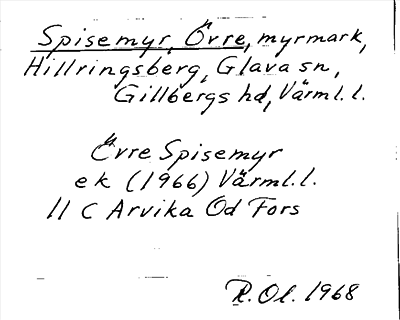 Spisemyr, Övre, myrmark,
Hillringsberg, Glava sn,
Gillbergs hd, Värml. l.
Övre Spisemyr
ek (1966) Värml. l.
11 C Arvika Od Fors
R. Ol. 1968